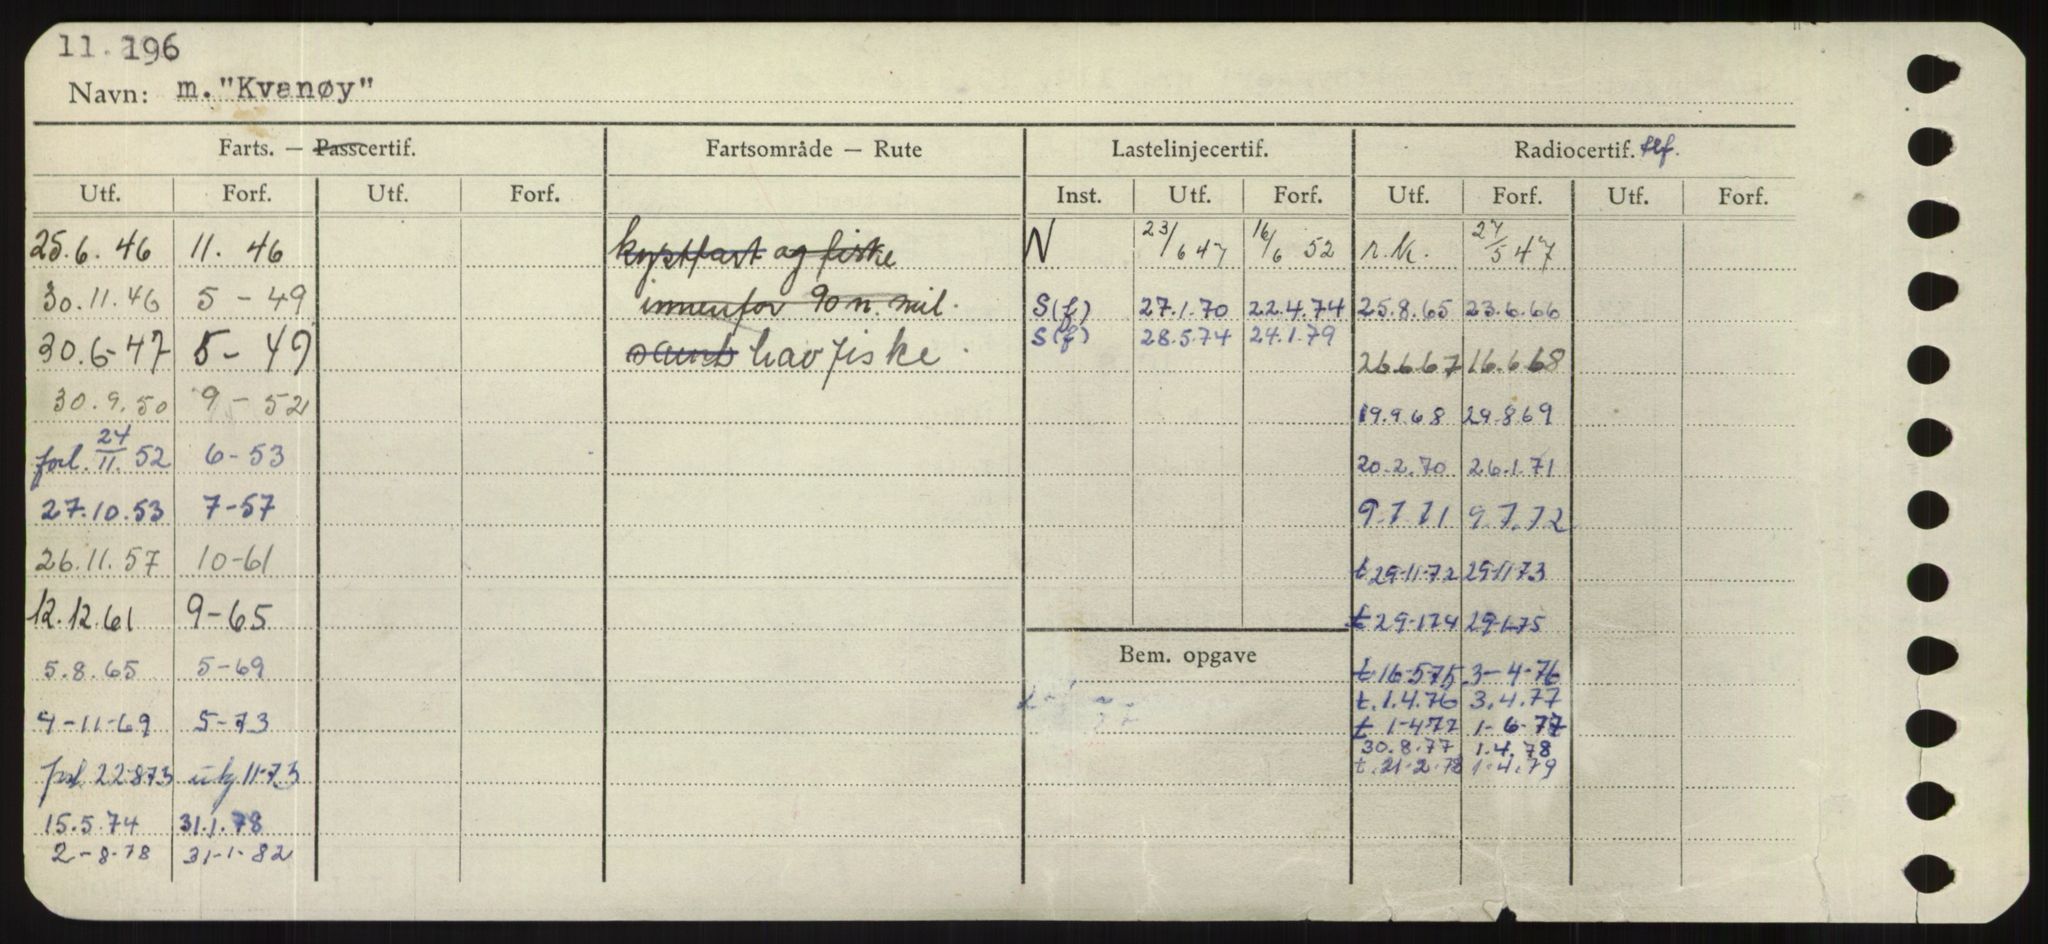 11.196
Navn: m. "Kvanøy"
Farts. — Passcertif. Fartsområde — Rute Lastelinjecertif. Radiocertif. tlf.
Utf. Forf. Utf. Forf. Inst. Utf. Forf. Utf. Forf. Utf. Forf.
25.6.46 11. 46 kystfart og fiske N 23/6 47 16/6 52 n.k. 27/5 47
30.11.46 5 - 49 innenfor 90 n. mil. S(f) 27.1.70 22.4.74 25.8.65 23.6.66
S(f) 28.5.74 24.1.79
30.6-47 5- 49 samt havfiske. 26.6.67 16.6.68
30.9.50 9 - 52 19.9.68 29.8.69
forl. 24/11. 52 6-53 20.2.70 26.1.71
27.10.53 7-57 9.7.71 9.7.72
26.11.57 10-61 t 29-11-72 29-11-73
12.12.61 9-65 t 29-1-74 29-1-75
Bem. opgave
5.8.65 5-69 t 16-5-75 3-4-76
t. 1.4.76 3.4.77
4-11-69 5-73 t 1-4-77 1-6-77
30.8.77 1.4.78
forl. 22-8-73 utg 11-73 t. 21-2-78 1-4.79
15.5.74 31.1.78
2-8-78 31-1-82